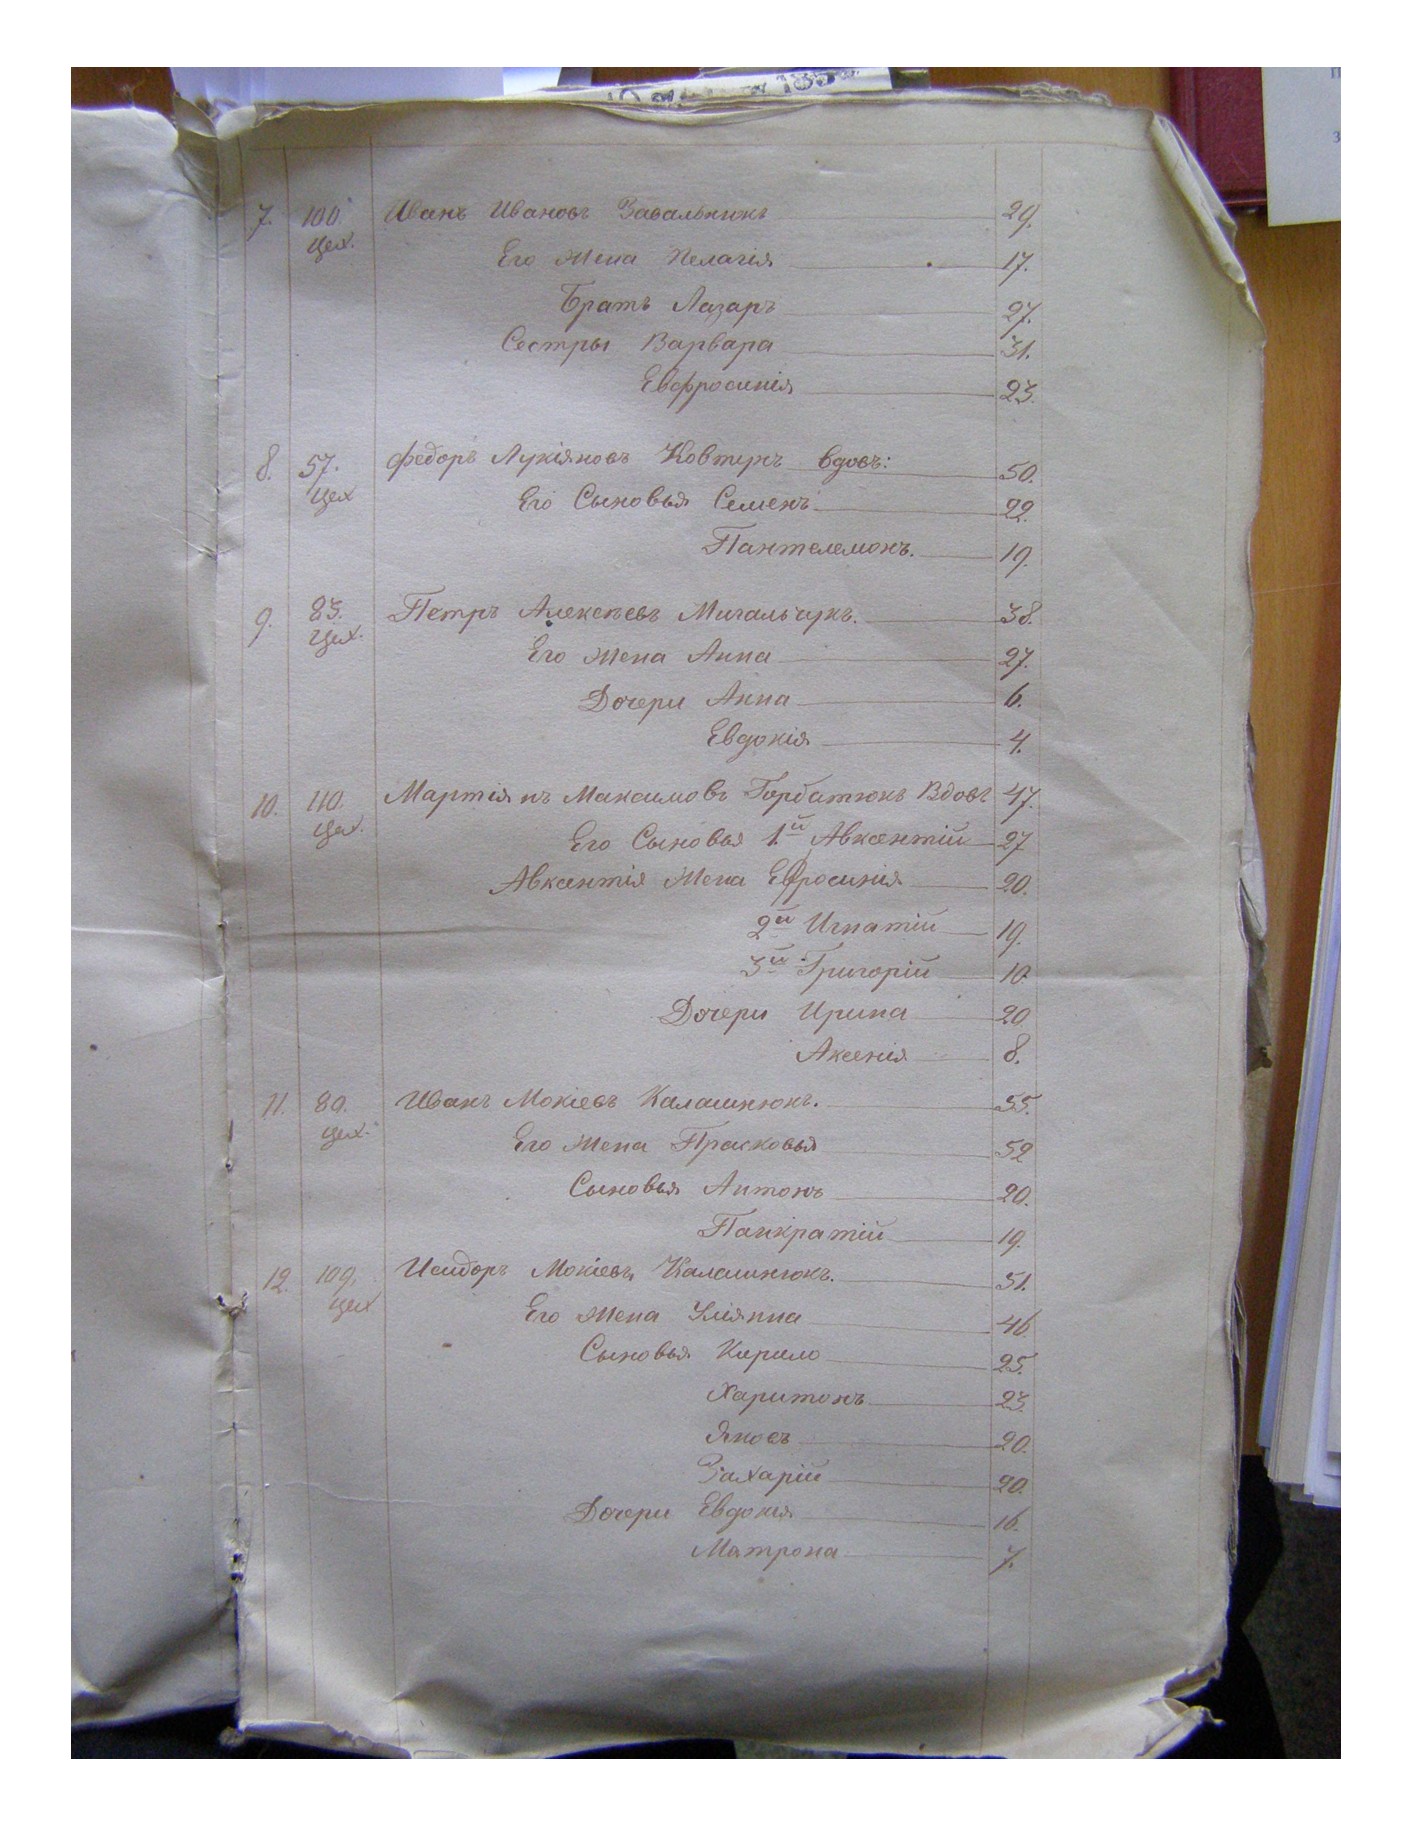 7. 100 Иванъ Ивановъ Завальнюкъ 29.
цех.
Его Жена Пелагія 17.
Братъ Лазаръ 27.
Сестры Варвара 31.
Евфросинія 23.
8. 57. Федоръ Лукіяновъ Ковтунъ вдовъ: 50.
цех
Его Сыновья Семенъ 22.
Пантелемонъ. 19.
9. 83. Петръ Алексѣевъ Мигальчукъ. 38.
цех.
Его Жена Анна 27.
Дочери Анна 6.
Евдокія 4.
10. 110. Мартіянъ Максимовъ Горбатюкъ Вдовъ 47.
цех.
Его Сыновья 1.й Авксентій 27
Авксентія Жена Евфросинія 20.
2й Игнатій 19.
3й Григорій 10.
Дочери Ирина 20
Аксенія 8.
11. 89. Иванъ Мокіевъ Калашнюкъ. 55.
цех.
Его Жена Прасковья 52
Сыновья Антонъ 20.
Панкратій 19.
12. 109. Исидоръ Мокіевъ Калашнюкъ. 51.
цех
Его Жена Уліянна 46
Сыновья Кирило 25.
Харитонъ 23.
Яковъ 20.
Захарій 20.
Дочери Евдокія 16.
Матрона 7.